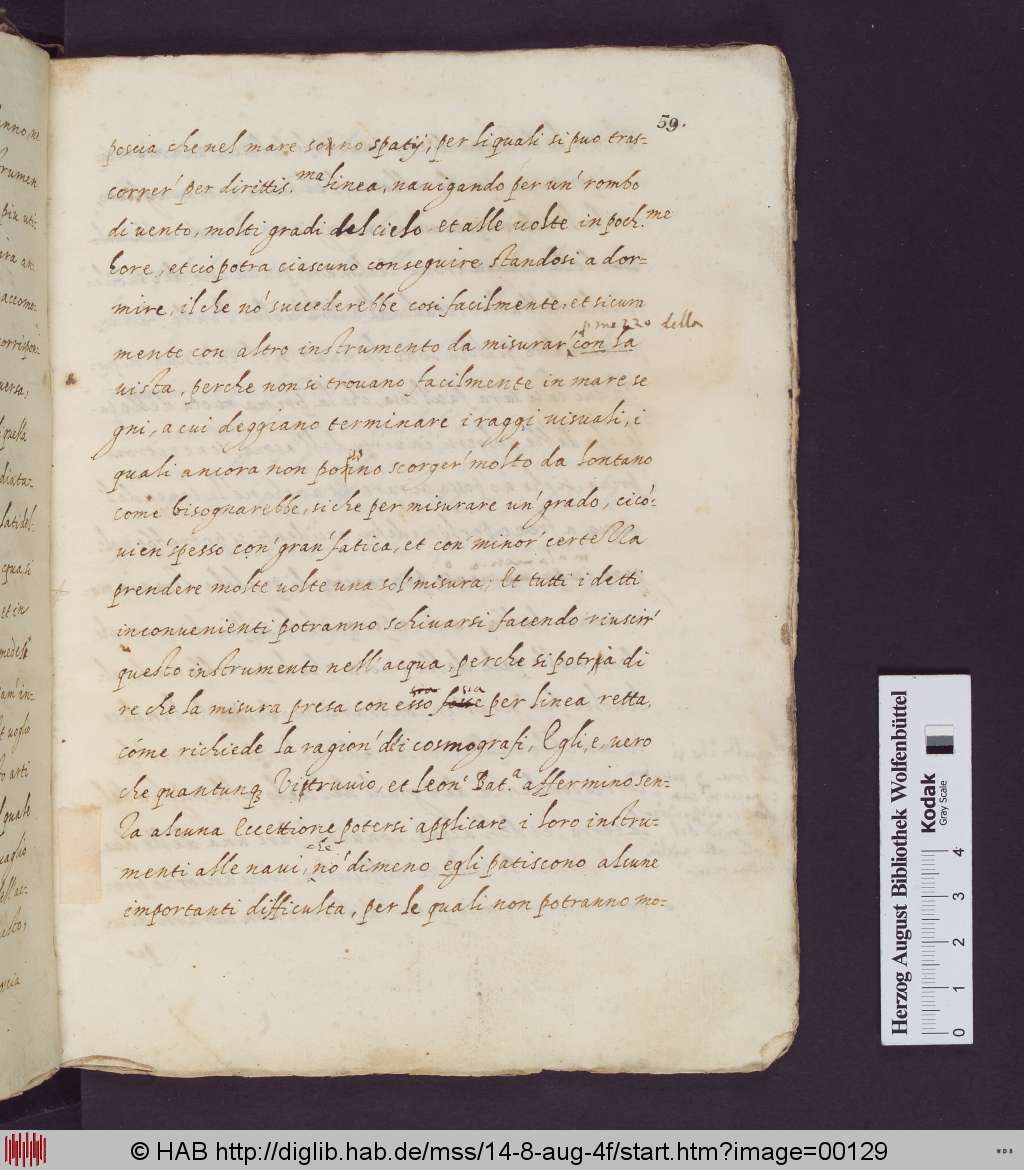 59.
poscia che nel mare sonno spatij, per li quali si puo tras=
correr' per dirittis.ma linea, navigando per un' rombo
di vento, molti gradi del cielo et alle volte in poch.me
hore, et cio potra ciascuno conseguire standosi a dor=
mire, il che nó succederebbe cosi facilmente, et sicura
p mezzo della
mente con altro instrumento da misurar' con la
vista, perche non si trovano facilmente in mare se
gni, a cui deggiano terminare i raggi visuali, i
quali ancora non ponno scorger' molto da lontano
come bisognarebbe, si che per misurare un' grado, ci có=
vien' spesso con' gran' fatica, et con' minor' certezza
prendere molte volte una sol' misura; Et tutti i detti
inconvenienti potranno schivarsi facendo riuscir'
questo instrumento nell' acqua, perche si potria di
re che la misura presa con esso sia per linea retta,
cóme richiede la ragion' dei cosmografi, Egli, e, vero
che quantunq3 Vitruvio, et Leon' Bat.a affermino sen=
za alcuna Eccettione potersi applicare i loro instru=
che
menti alle navi, nó dimeno egli patiscono alcune
importanti difficulta, per le quali non potranno mo=
anno, ne
strumen
piu uti=
accomo=
versa,
quella
quasi
et in
et voglio
arti
quale
Herzog August Bibliothek Wolfenbüttel
Kodak
Gray Scale
0 1 2 3 4
© HAB http://diglib.hab.de/mss/14-8-aug-4f/start.htm?image=00129